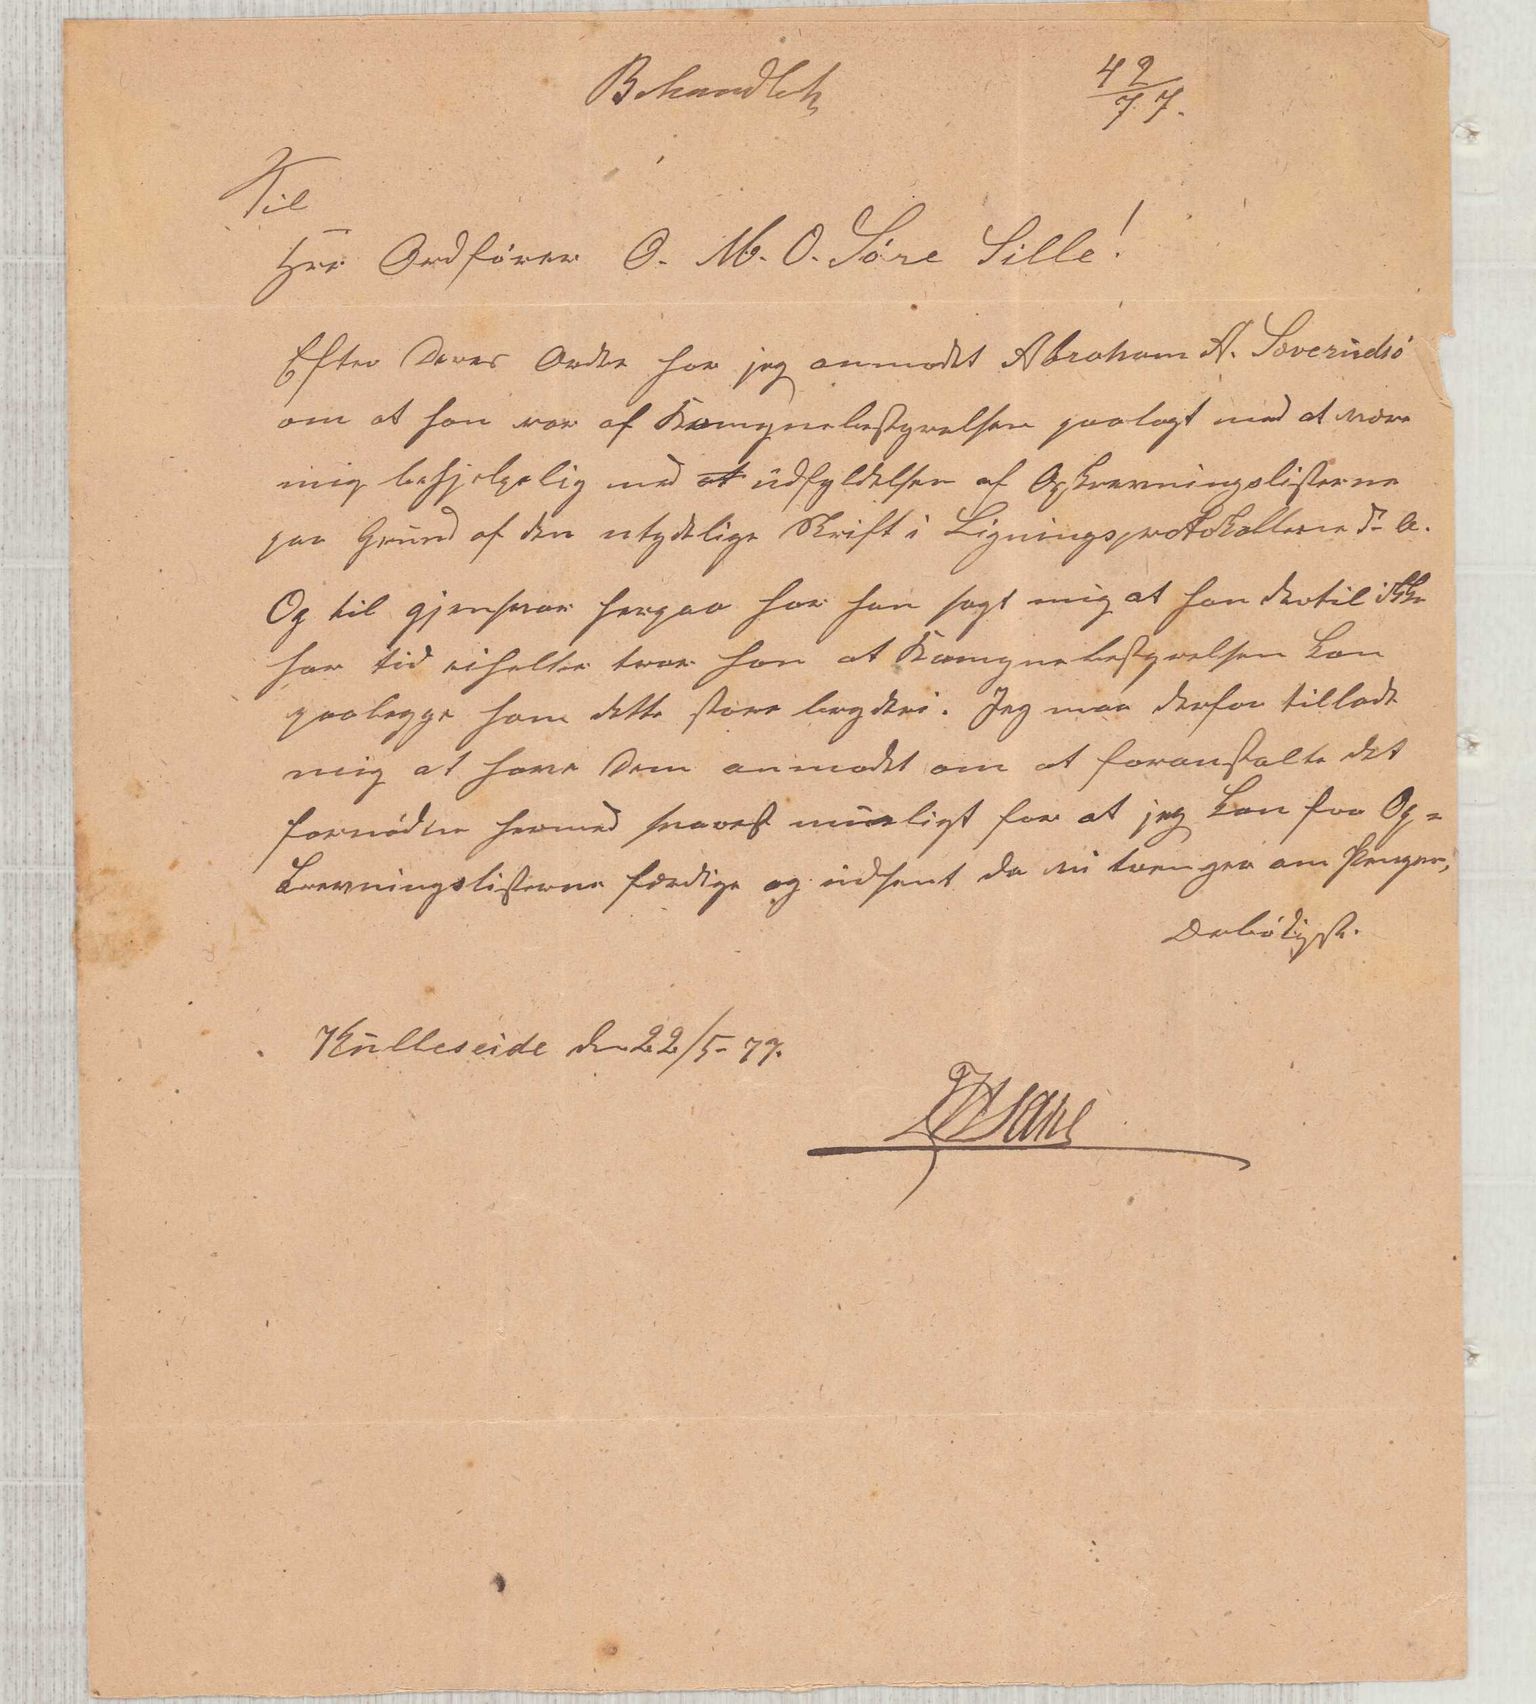 Behandlet 42/77.
Til
Herr Ordfører O. M. O. Søre Lille!
Efter Deres Ordre har jeg anmodet Abraham A.
om at han var af Komynebestyrelsen paalagt med at være
mig behjelpelig med at üdfyldelsen af Opkrevningslisterne
paa Gründ af den utydelige Skrift i Ligningsprotokollerne d. a.
Og til gjensvar herpaa har han sagt mig at han dertil ikke
har tid eiheller tror han at Komynebestyrelsen kan
paalegge ham dette store bryderi. Jeg maa derfor tillade
mig at have Dem anmodet om at foranstalte det
fornødne hermed snarest müeligt for at jeg kan faa Op=
krevningslisterne færdige og üdsent da vi trenger om Penger,
Derbødigst.
Külleseide den 22/5-77.